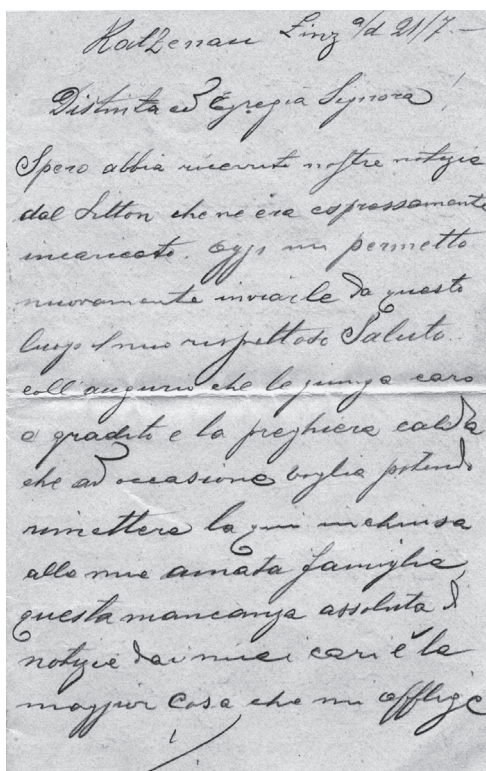 Katzenau Linz a/d 21/7.-
Distinta ed Egregia Signora!
Spero abbia ricevute nostre notizie
dal Sitton che ne era espressamente
incaricato. Oggi mi permetto
nuovamente inviarle da questo
luogo il mio rispettoso Saluto.
coll'augurio che le giunga caro
e gradito e la preghiera calda
che ad occasione voglia potendo
rimettere la qui inchiusa
alla mia amata famiglia,
questa mancanza assoluta di
notizie dai miei cari è la
maggior cosa che mi afflige
!